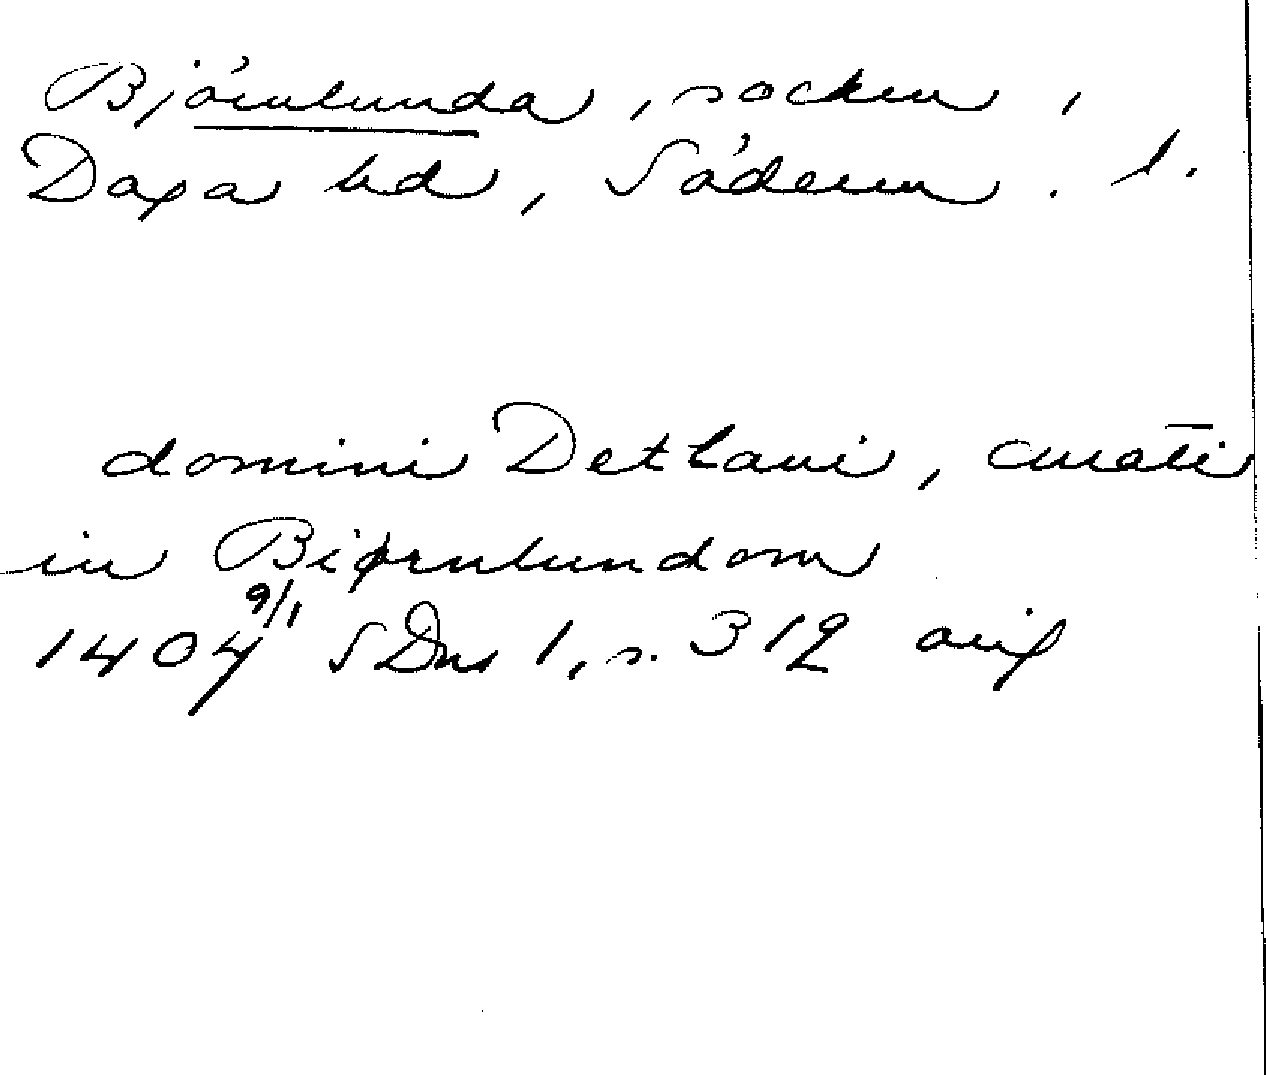 Björnlunda, socken,
Daga hd, Söderm. l.
domini Dethaui, curati
in Biørnlundom
1407 9/1 SDns 1, s. 312 avig